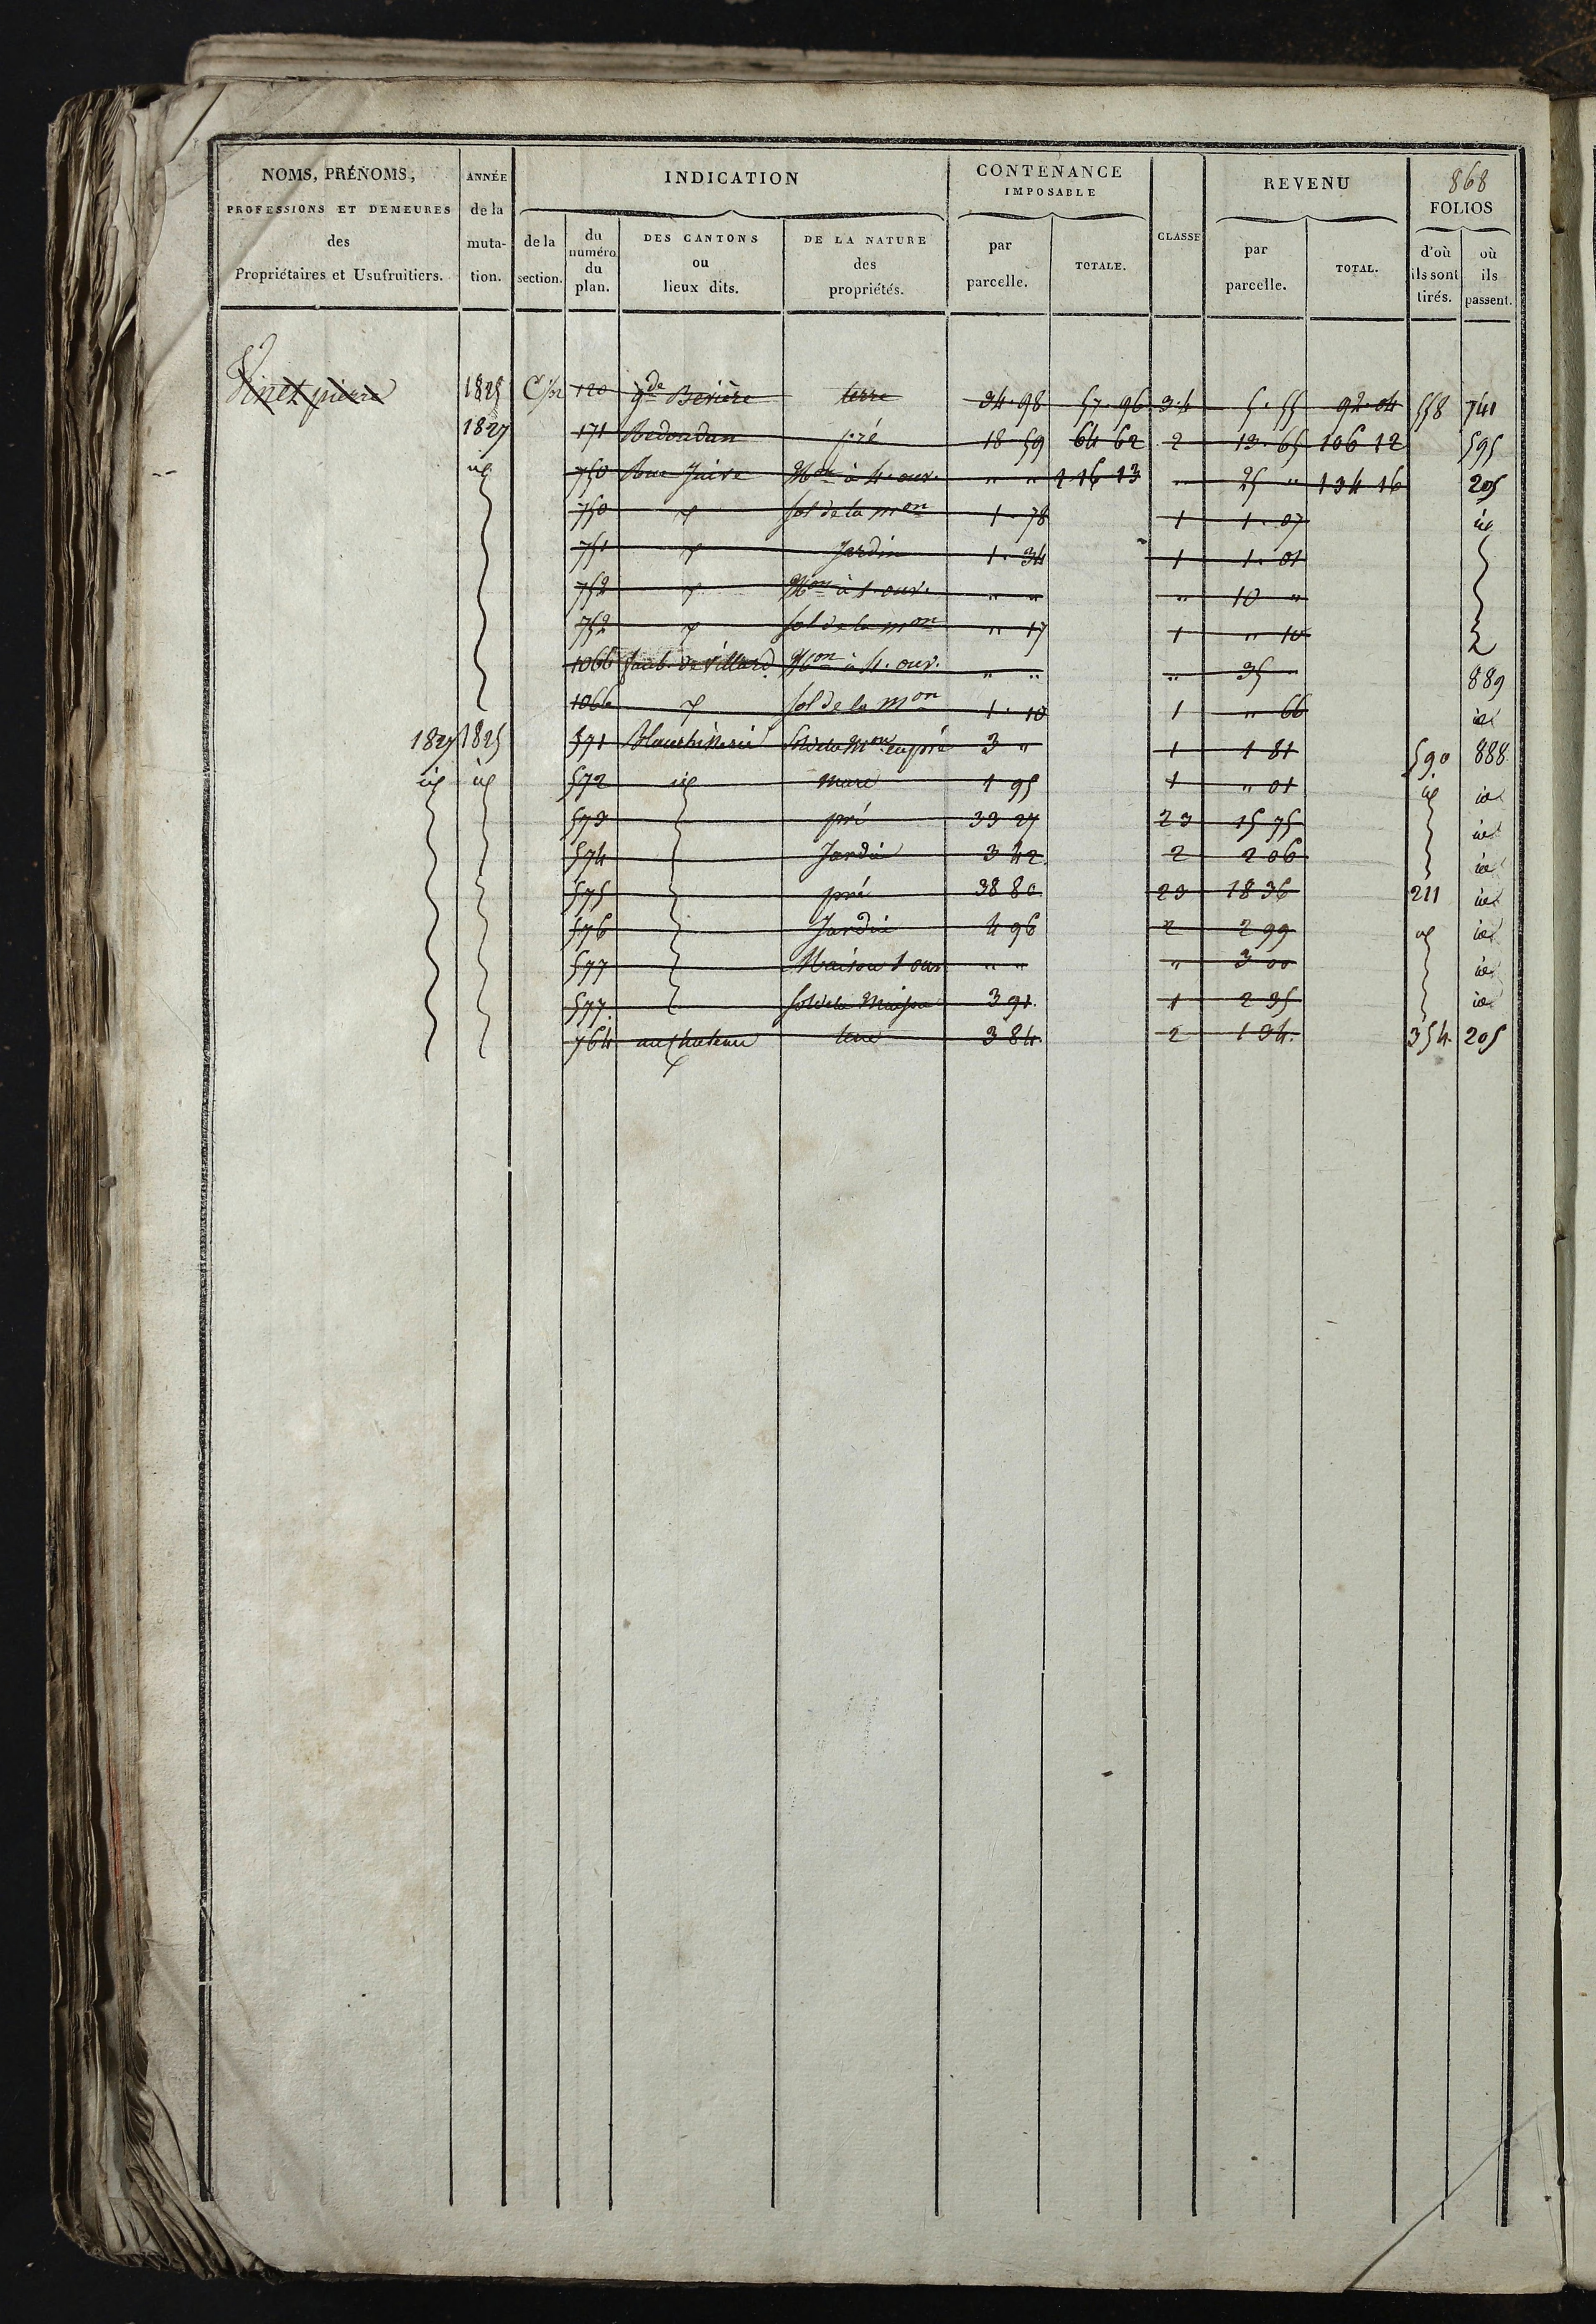 868
NOMS, PRÉNOMS, PROFESSIONS ET DEMEURES des Propriétaires et Usufruitiers.
ANNÉE de la muta- tion.
INDICATION
de la section.
du numéro du plan.
DES CANTONS ou lieux dits.
DE LA NATURE des propriétés.
CONTENANCE IMPOSABLE
par parcelle.
TOTALE.
CLASSE
REVENU
par parcelle.
TOTAL.
FOLIOS
d'où ils sont tirés.
où ils passent.
Vinet pierre 1825 C 120 gde terre 34.98 57.96 3.4 5.55 92.04 558 741
1827 171 Redondun pré 18.59 64 62 2 13.65 106 12 595
id 750 Rue Juive Mon à 4. ouv. " " 1 16 13 " 25 " 134 16 205
750 sol de la mon 1.78 1 1.07 id
751 Jardin 1.34 1 1.01
752 Mon à 1. ouv. " " " 10 "
752 sol de la mon " 17 1 " 10
1066 faub. de Villard Mon à 4. ouv. " " " 35 " 889
1066 sol de la mon 1.10 1 " 66 id
1827 1825 571 sol de la Mon en pré 3 " 1 1 81 590 888
id id 572 id mare 1 95 1 " 01 id id
573 pré 33 27 23 15 75 id
574 Jardin 3 42 2 2 06 id
575 pré 38 80 23 18 36 211 id
576 Jardin 4 96 2 2 99 id id
577 Maison 1 ouv " " " 3 00 id
577. sol de la Maison 3 91. 1 2 35 id
764 au chateau terre 3 84. 2 1 34. 354. 205